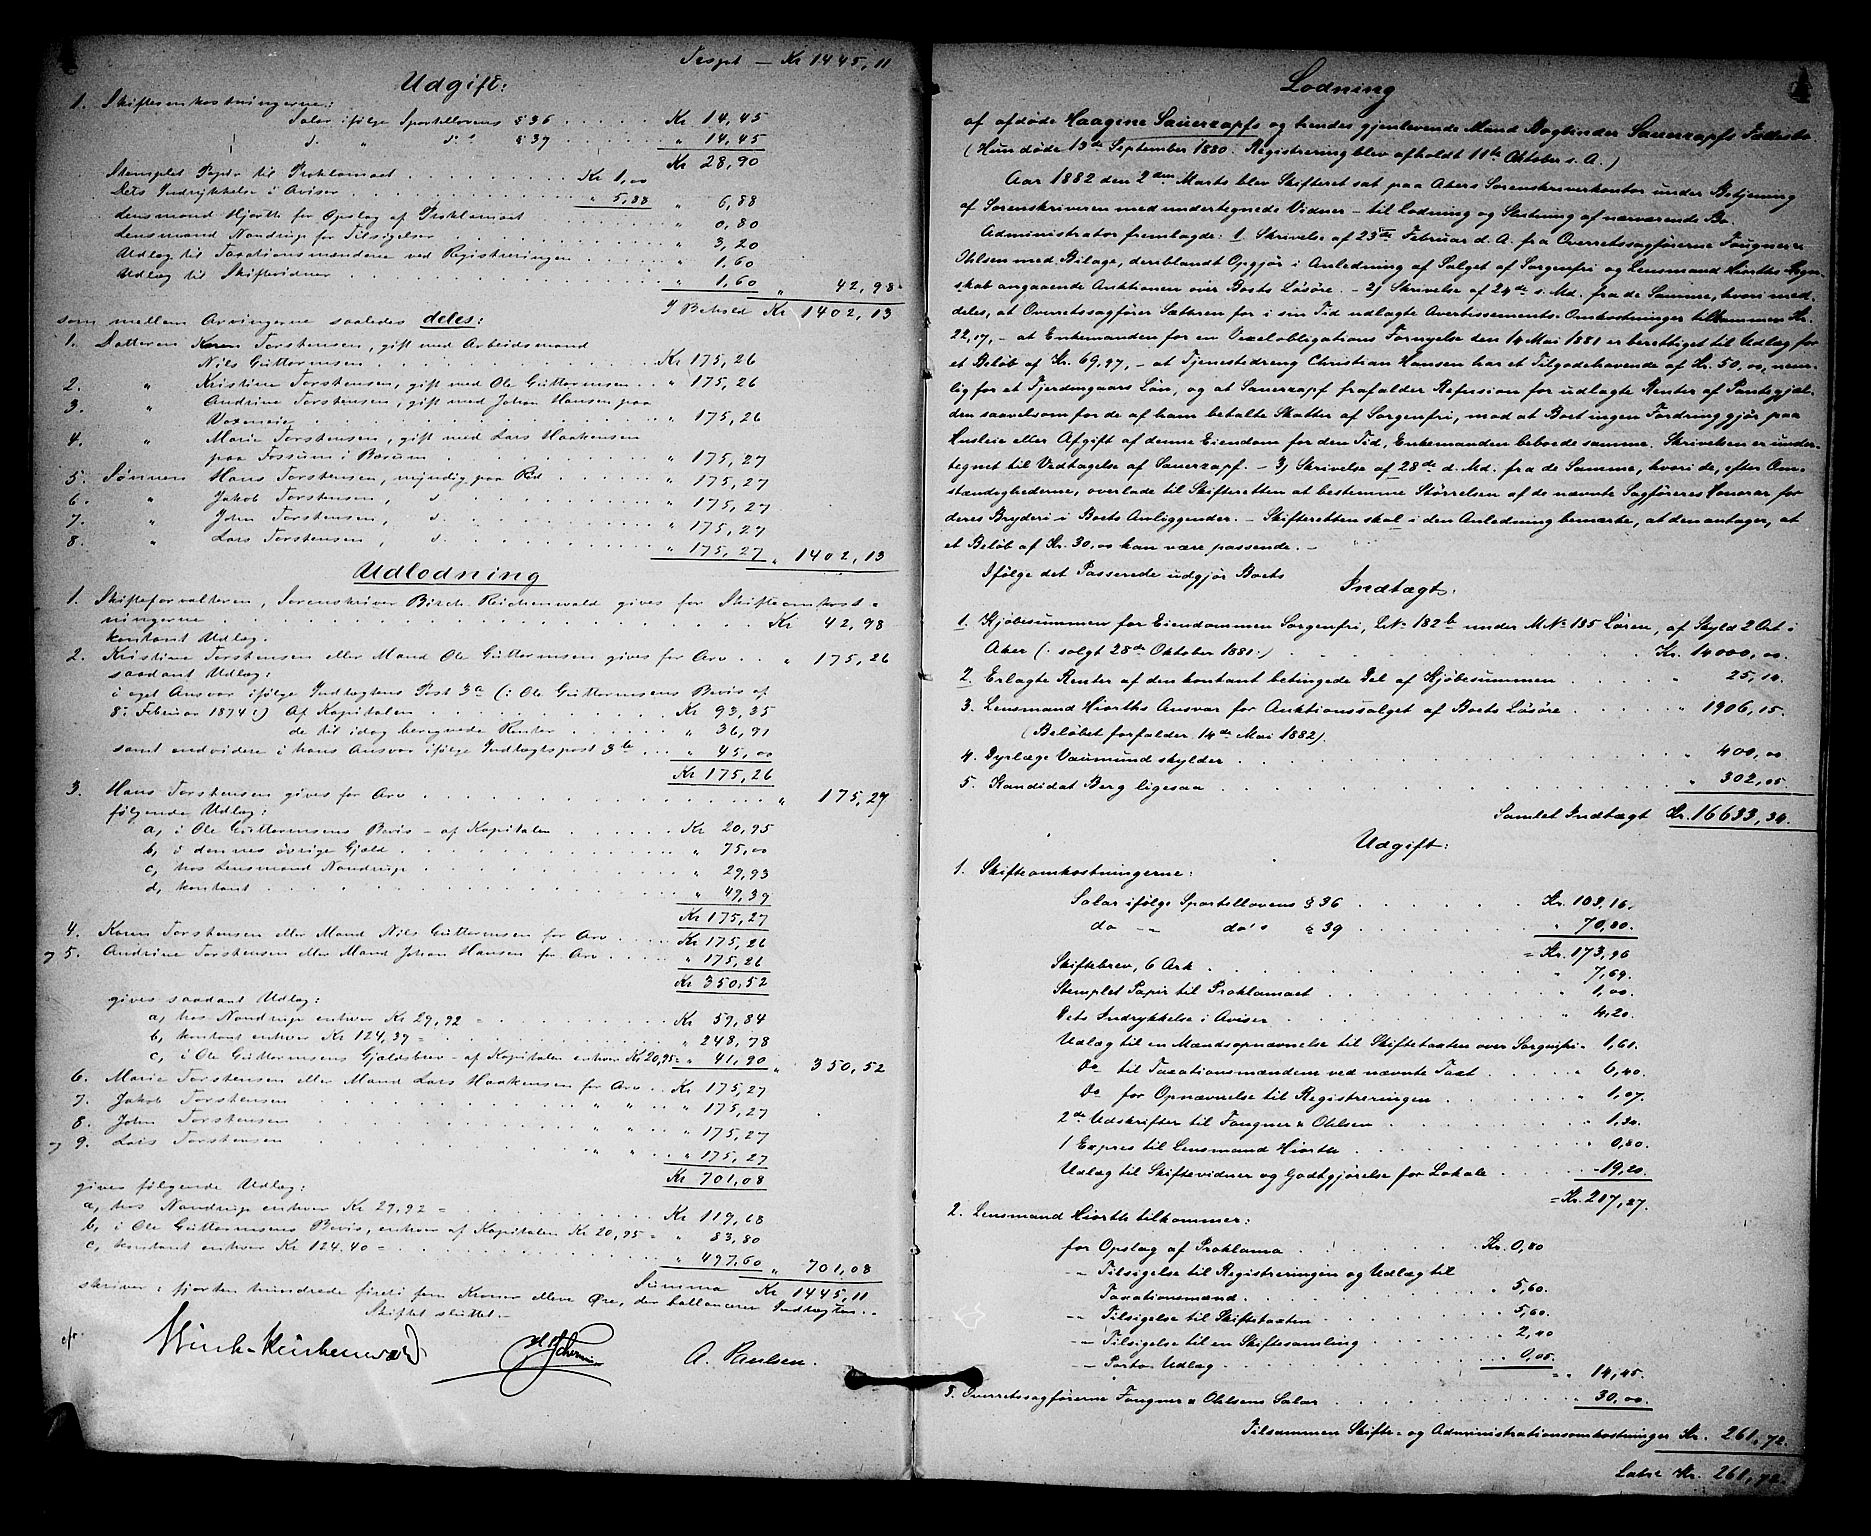 Transpt — Kr 1445,11
Udgift:
1. Skifteomkostningerne:
Salar ifølge Sportellovens § 36 . . . . . Kr 14,45
d. " d.° § 39 . . . . . " 14,45
Kr 28,90
Stemplet Papir til Proklamaet . . . . . Kr 1,00
Dets Indrykkelse i Aviser . . . . . " 5,88 " 6,88
Lensmand Hjorth for Opslag af Proklamaet . . . " 0,80
Lensmand Nandrup for Tilsigelser . . . . . " 3,20
Udlæg til Taxationsmændene ved Registreringen . . . . " 1,60
Udlæg til Skiftevidner . . . . . " 1,60 " 42,98
I Behold Kr 1402,13
som mellem Arvingerne saaledes deles:
1. Datteren Karen Torstensen, gift med Arbeidsmand
Nils Guttormsen . . . . . Kr 175,26
2. " Kristine Torstensen, gift med Ole Guttormsen . . " 175,26
3. " Andrine Torstensen, gift med Johan Hansen paa
Voxeneie . . . . . " 175,26
4. " Marie Torstensen, gift med Lars Haakensen
paa Fossum i Bærum . . . . . " 175,27
5. Sønnen Hans Torstensen, myndig paa Rød . . . . " 175,27
6. " Jakob Torstensen, d. . . . . " 175,27
7. " John Torstensen, d. . . . . " 175,27
8. " Lars Torstensen, d. . . . . " 175,27 " 1402,13
Udlodning
1. Skifteforvalteren, Sorenskriver Birch-Reichenwald gives for Skifteomkost-
ningerne . . . . . Kr 42,98
kontant Udlæg.
2. Kristine Torstensen eller Mand Ole Guttormsen gives for Arv . . " 175,26
saadant Udlæg:
i eget Ansvar ifølge Indtægtens Post 3a (: Ole Guttormsens Bevis af
8. Februar 1874 :) Af Kapitalen . . . . . Kr 93,35
de til idag beregnede Renter . . . " 36,91
samt endvidere i hans Ansvar ifølge Indtægtspost 3b . . . " 45,00
Kr 175,26
3. Hans Torstensen gives for Arv . . . . . " 175,27
følgende Udlæg:
a, i Ole Guttormsens Bevis - af Kapitalen . . . . Kr 20,95
b, i dennes øvrige Gjæld . . . . . " 75,00
c, hos Lensmand Nandrup . . . . . " 29,93
d, kontant . . . . . " 49,39
Kr 175,27
4. Karen Torstensen eller Mand Nils Guttormsen for Arv . . . . Kr 175,26
og 5. Andrine Torstensen eller Mand Johan Hansen for Arv . . . . " 175,26
Kr 350,52
gives saadant Udlæg:
a, hos Nandrup enhver Kr 29,92 = . . . . . Kr 59,84
b, kontant enhver Kr 124,39 = . . . . . " 248,78
c, i Ole Guttormsens Gjældsbrev - af Kapitalen enhver Kr 20,95 = " 41,90 " 350,52
6. Marie Torstensen eller Mand Lars Haakensen for Arv . . Kr 175,27
7. Jakob Torstensen . . . . . " " . . " 175,27
8. John Torstensen . . . . . " " . . " 175,27
og 9. Lars Torstensen . . . . . " " . . " 175,27
Kr 701,08
gives følgende Udlæg:
a, hos Nandrup enhver Kr 29,92 = . . . . . Kr 119,68
b, i Ole Guttormsens Bevis, enhver af Kapitalen Kr 20,95 = " 83,80
c, kontant enhver Kr 124.40 = . . . . . " 497,60 " 701,08
Summa Kr 1445,11
skriver: fjorten hundrede firti fem Kroner elleve Øre, der ballancerer Indtægten. -
Skiftet sluttet. -
Birch-Reichenwald A. Paulsen.
Lodning
af afdøde Haagine Sauerzapfs og hendes gjenlevende Mand Bogbinder Sauerzapfs Fællesbo
(Hun døde 13de September 1880. Registrering blev afholdt 11te Oktober s. A.)
Aar 1882 den 2den Marts blev Skifteret sat paa Akers Sorenskriverkontor under Betjening
af Sorenskriveren med undertegnede Vidner - til Lodning og Slutning af nærværende Bo.
Administrator fremlagde: 1. Skrivelse af 23de Februar d. A. fra Overretssagførerne Fougner &
Ohlsen med Bilage, deriblandt Opgjør i Anledning af Salget af Sorgenfri og Lensmand Hiorths Regn-
skab angaaende Auktionen over Boets Løsøre. - 2) Skrivelse af 24de s. Md. fra de Samme, hvori med-
deles, at Overretssagfører Sæthren for i sin Tid udlagte Avertissements-Omkostninger tilkommer Kr.
22,07, - at Enkemanden for en Vexelobligations Fornyelse den 14 Mai 1881 er berettiget til Udlæg for
et Beløb af Kr. 69,97, - at Tjenestedreng Christian Hansen har et Tilgodehavende af Kr. 50,00, nem-
lig for et Fjerdingaars Løn, og at Sauerzapf frafalder Refussion for udlagte Renter af Pantegjæl-
den saavelsom for de af ham betalte Skatter af Sorgenfri, mod at Boet ingen Fordring gjør paa
Husleie eller Afgift af denne Eiendom for den Tid, Enkemanden beboede samme. Skrivelsen er under-
tegnet til Vedtagelse af Sauerzapf. - 3) Skrivelse af 28de d. Md. fra de Samme, hvori de, efter Om-
stændighederne, overlade til Skifteretten at bestemme Størrelsen af de nævnte Sagføreres Honorar for
deres Bryderi i Boets Anliggender. - Skifteretten skal i den Anledning bemærke, at den antager, at
et Beløb af Kr. 30,00 kan være passende. -
Ifølge det Passerede udgjør Boets
Indtægt:
1. Kjøbesummen for Eiendommen Sorgenfri, LNo 182b under MNo 135 Løren, af Skyld 2 Ort i
Aker (: solgt 28de Oktober 1881 :) . . . . . Kr. 14000,00.
2. Erlagte Renter af den kontant betingede Del af Kjøbesummen . . . . " 25,14.
3. Lensmand Hiorths Ansvar for Auktionssalget af Boets Løsøre . . . . " 1906,15.
(Beløbet forfalder 14de Mai 1882).
4. Dyrlæge Vaumund skylder . . . . . " 400,00
5. Kandidat Berg ligesaa . . . . . " 302,05
Samlet Indtægt Kr. 16633,34.
Udgift:
1. Skifteomkostningerne:
Salar ifølge Sportellovens § 36 . . . . . Kr. 103,16.
do -"- do's § 39 . . . . . " 70,80.
= Kr. 173,96
Skiftebrev, 6 Ark . . . . . " 7,69.
Stemplet Papir til Proklamaet . . . . . " 1,00.
Dets Indrykkelse i Aviser . . . . . " 4,20.
Udlæg til en Mændsopnævnelse til Skiftetaxten over Sorgenfri - 1,61.
Do til Taxationsmændene ved nævnte Taxt . . . . " 6,40.
Do for Opnævnelse til Registreringen . . . . . " 1,07.
2de Udskrifter til Fougner & Ohlsen . . . . . " 1,30.
1 Expres til Lensmand Hiorth . . . . . " 0,80.
Udlæg til Skiftevidner og Godtgjørelse for Lokale . . . . - 19,20.
= Kr. 217,27.
2. Lensmand Hiorth tilkommer:
for Opslag af Proklama . . . . . Kr. 0,80
-"- Tilsigelse til Registreringen og Udlæg til
Taxationsmænd . . . . . " 5,60.
-"- Tilsigelse til Skiftetaxten . . . . . " 5,60.
-"- Tilsigelse til en Skiftesamling . . . . . " 2,40
-"- Porto-Udlæg . . . . . " 0,05.
= " 14,45.
3. Overretssagførerne Fougner & Ohlsens Salar . . . . . " 30,00.
Tilsammen Skifte- og Administrationsomkostninger Kr. 261,72.
Latus Kr. 261,72.